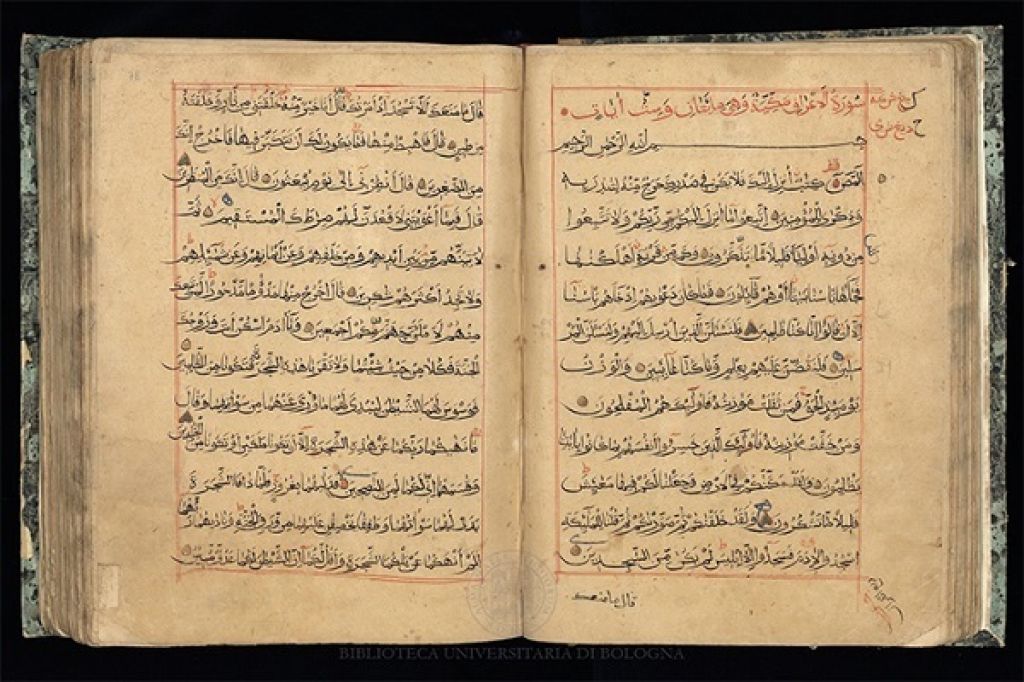 سورة الاعراف مكية وهي مائتان وست آيات
بسم الله الرحمن الرحيم
المص كتب أنزل إليك فلا يكن في صدرك حرج منه لتنذر به
وذكرى للمؤمنين اتبعوا ما أنزل إليكم من ربكم ولا تتبعوا
من دونه أولياء قليلا ما تذكرون وكم من قرية أهلكنها
فجاءها بأسنا بيتا أو هم قائلون فما كان دعويهم إذ جاءهم بأسنا
إلا أن قالوا إنا كنا ظلمين فلنسئلن الذين أرسل إليهم ولنسئلن المر
سلين فلنقصن عليهم بعلم وما كنا غائبين والوزن
يومئذ الحق فمن ثقلت موزينه فأولئك هم المفلحون
ومن خفت موزينه فأولئك الذين خسروا أنفسهم بما كانوا بايتنا
يظلمون ولقد مكنكم في الأرض وجعلنا لكم فيها معيش
قليلا ما تشكرون ولقد خلقنكم ثم صورنكم ثم قلنا للملئكة
اسجدوا لادم فسجدوا إلا إبليس لم يكن من السجدين
قال ما منعك
قال ما منعك ألا تسجد إذ أمرتك قال أنا خير منه خلقتني من نار وخلقته
من طين قال فاهبط منها فما يكون لك أن تتكبر فيها فاخرج إنك
من الصغرين قال أنظرني إلى يوم يبعثون قال إنك من المنظرين
قال فبما أغويتني لأقعدن لهم صرطك المستقيم ثم
لاتينهم من بين أيديهم ومن خلفهم وعن أيمنهم وعن شمائلهم
ولا تجد أكثرهم شكرين قال اخرج منها مذءوما مدحورا لمن تبعك
منهم لأملأن جهنم منكم أجمعين ويادم اسكن أنت وزوجك
الجنة فكلا من حيث شئتما ولا تقربا هذه الشجرة فتكونا من الظلمين
فوسوس لهما الشيطن ليبدي لهما ما وري عنهما من سواتهما وقال
ما نهيكما ربكما عن هذه الشجرة إلا أن تكونا ملكين أو تكونا من الخلدين
وقاسمهما إني لكما لمن النصحين فدليهما بغرور فلما ذاقا الشجرة
بدت لهما سواتهما وطفقا يخصفان عليهما من ورق الجنة وناديهما ربهما
ألم أنهكما عن تلكما الشجرة وأقل لكما إن الشيطن لكما عدو مبين
BIBLIOTECA UNIVERSITARIA DI BOLOGNA